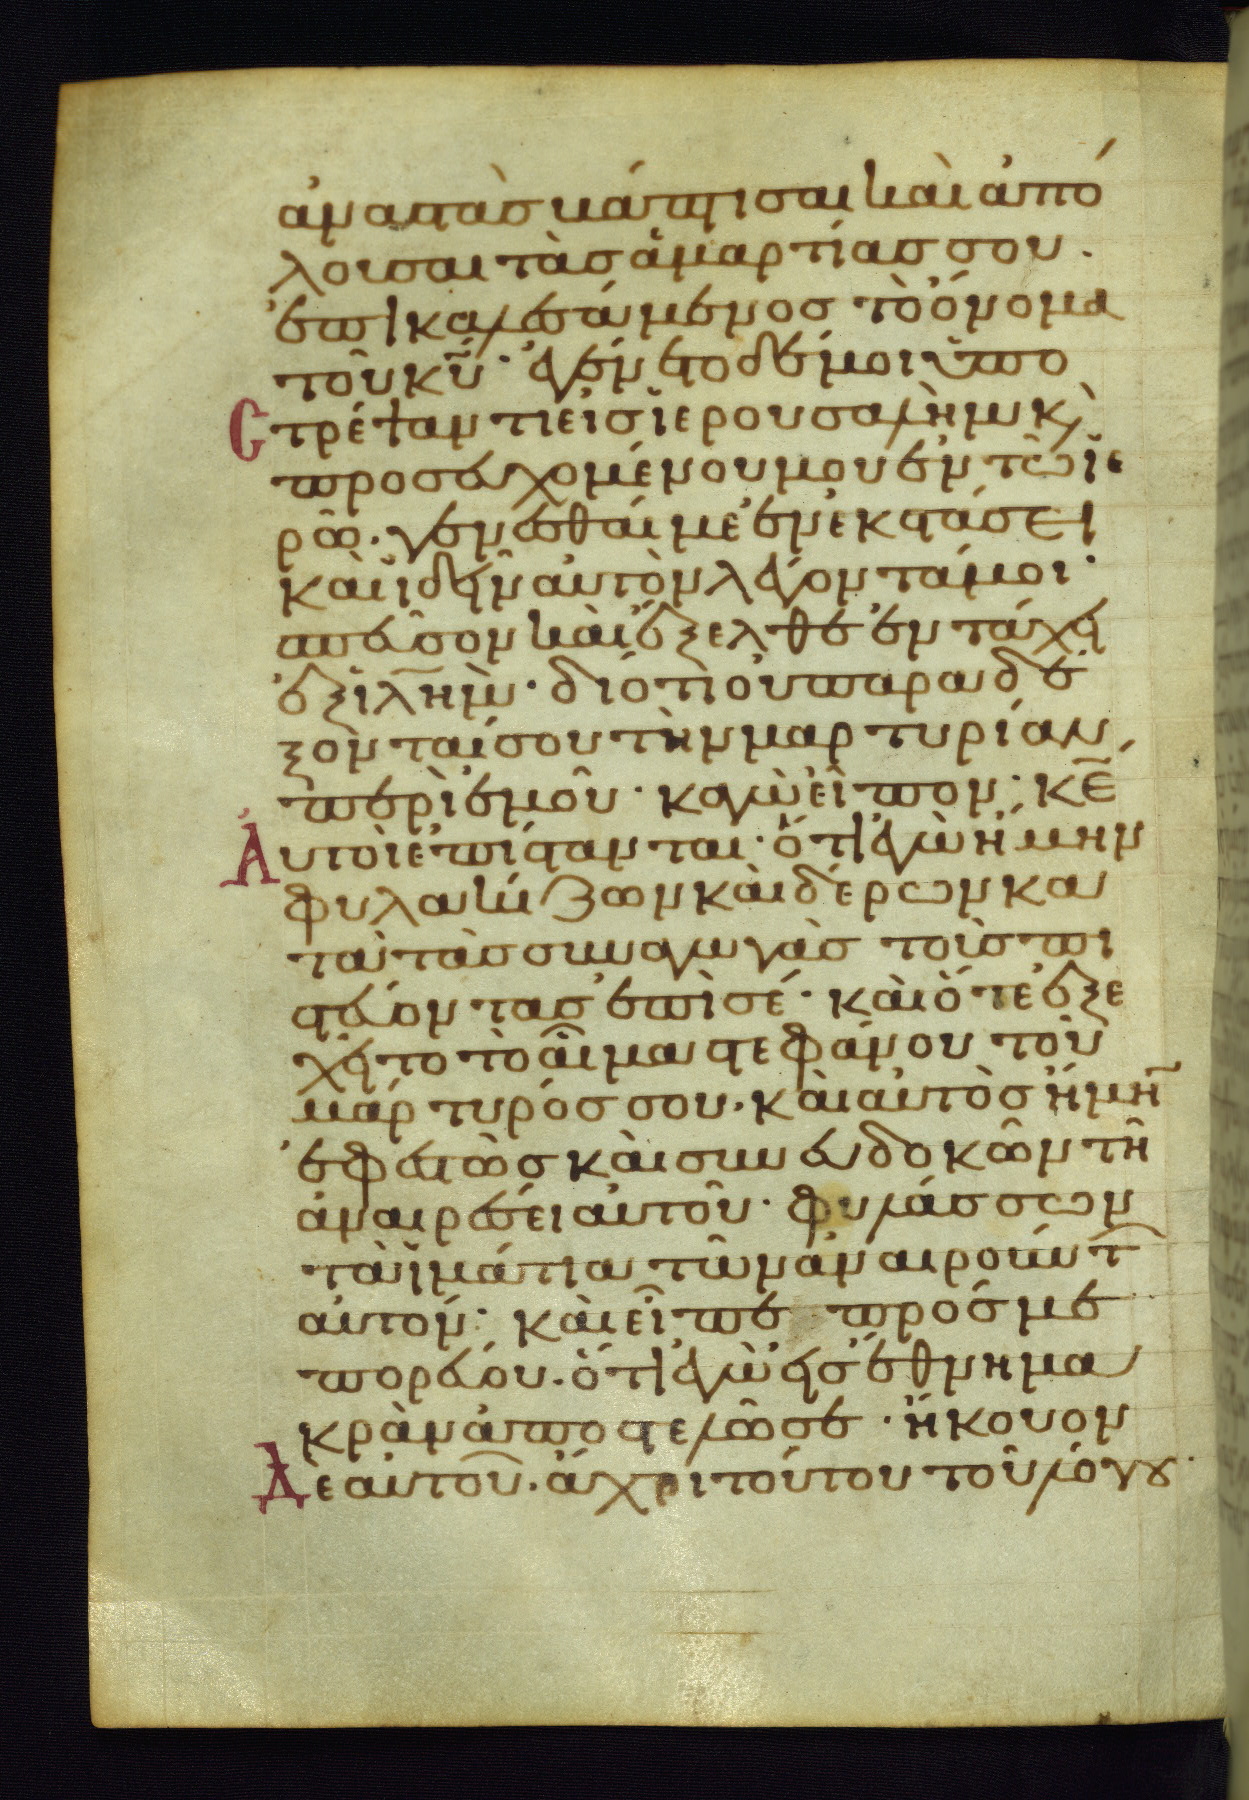 ἀναστὰς βάπτισαι καὶ ἀπό
λουσαι τὰς ἁμαρτίας σου.
ἐπικαλεσάμενος τὸ ὄνομα
τοῦ κ̅υ̅· ἐγένετο δέ μοι ὑπο
στρέψαντι εἰς ϊερουσαλὴμ κ̀
προσευχομένου μου ἐν τῶ ϊε
ρῶ. γενέσθαι με ἐν ἐκστάσει
καὶ ϊδεῖν αὐτὸν λέγοντά μοι·
σπεῦσον καὶ ἔξελθε ἐν τάχει
ἐξ ϊλ̅η̅μ̅· διότι οὐ παραδέ
ξονταί σου τὴν μαρτυρίαν
περὶ ἐμοῦ· κἀγὼ εἶπον· κ̅ε̅
Αὐτοὶ ἐπίστανται· ὅτι ἐγὼ ἤμην
φυλακίζων καὶ δέρων κα
τὰ τὰς συναγωγὰς τοὺς πι
στεύοντας ἐπὶ σέ· καὶ ὅτε ἐξε
χεῖτο τὸ αἷμα στεφάνου τοῦ
μάρτυρός σου. καὶ αὐτὸς ἤμη̅
ἐφεστὼς καὶ συνευδοκῶν τῆ
ἀναιρέσει αὐτοῦ· φυλάσσων
τὰ ϊμάτια τῶν ἀναιρούντ̅
αὐτόν· καὶ εἶπε πρός με
πορεύου. ὅτι ἐγὼ εἰς ἔθνη μα
κρὰν ἀποστελῶ σε· ἤκουον
Δε αὐτοῦ. ἄχρι τούτου τοῦ λόγου·